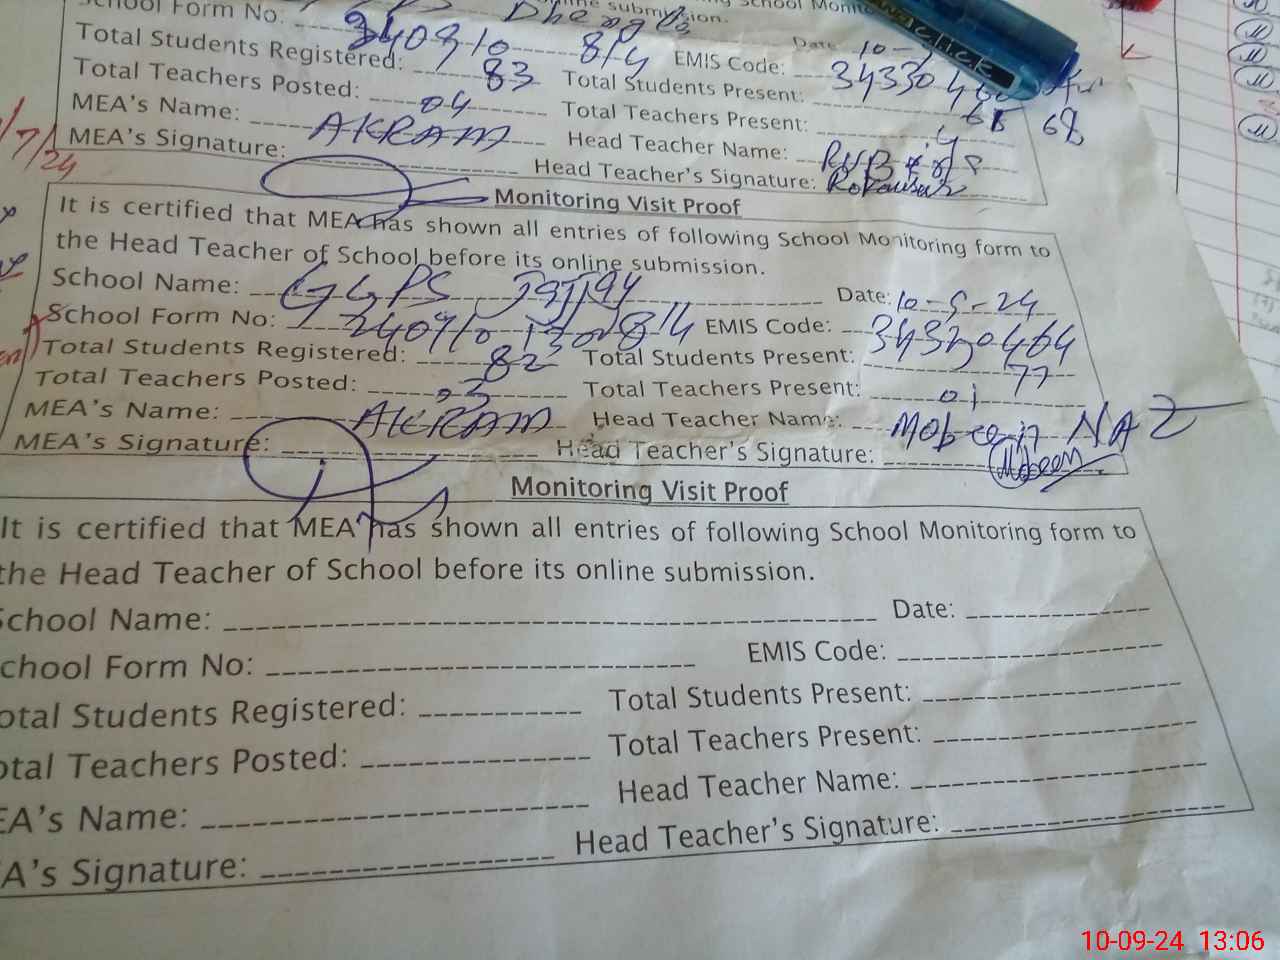 submission.
School Form No. 240910 814 Date 10-
Total Students Registered: 83 EMIS Code: 34330
Total Teachers Posted: 04 Total Students Present: 68 68
MEA's Name: AKRAM Total Teachers Present:
MEA's Signature: Head Teacher Name:
Head Teacher's Signature:
/7/24
click
Monitoring Visit Proof
It is certified that MEA has shown all entries of following School Monitoring form to
the Head Teacher of School before its online submission.
School Name: GGPS Date: 10-9-24
School Form No: 240910 130 814 EMIS Code: 34330464
Total Students Registered: 82 Total Students Present: 77
Total Teachers Posted: 03 Total Teachers Present: 01
MEA's Name: AKRAM Head Teacher Name: Mobeen NAZ
MEA's Signature: Head Teacher's Signature: Mobeen
Monitoring Visit Proof
It is certified that MEA has shown all entries of following School Monitoring form to
the Head Teacher of School before its online submission.
School Name: Date:
chool Form No: EMIS Code:
otal Students Registered: Total Students Present:
otal Teachers Posted: Total Teachers Present:
EA's Name: Head Teacher Name:
A's Signature: Head Teacher's Signature:
10-09-24 13:06